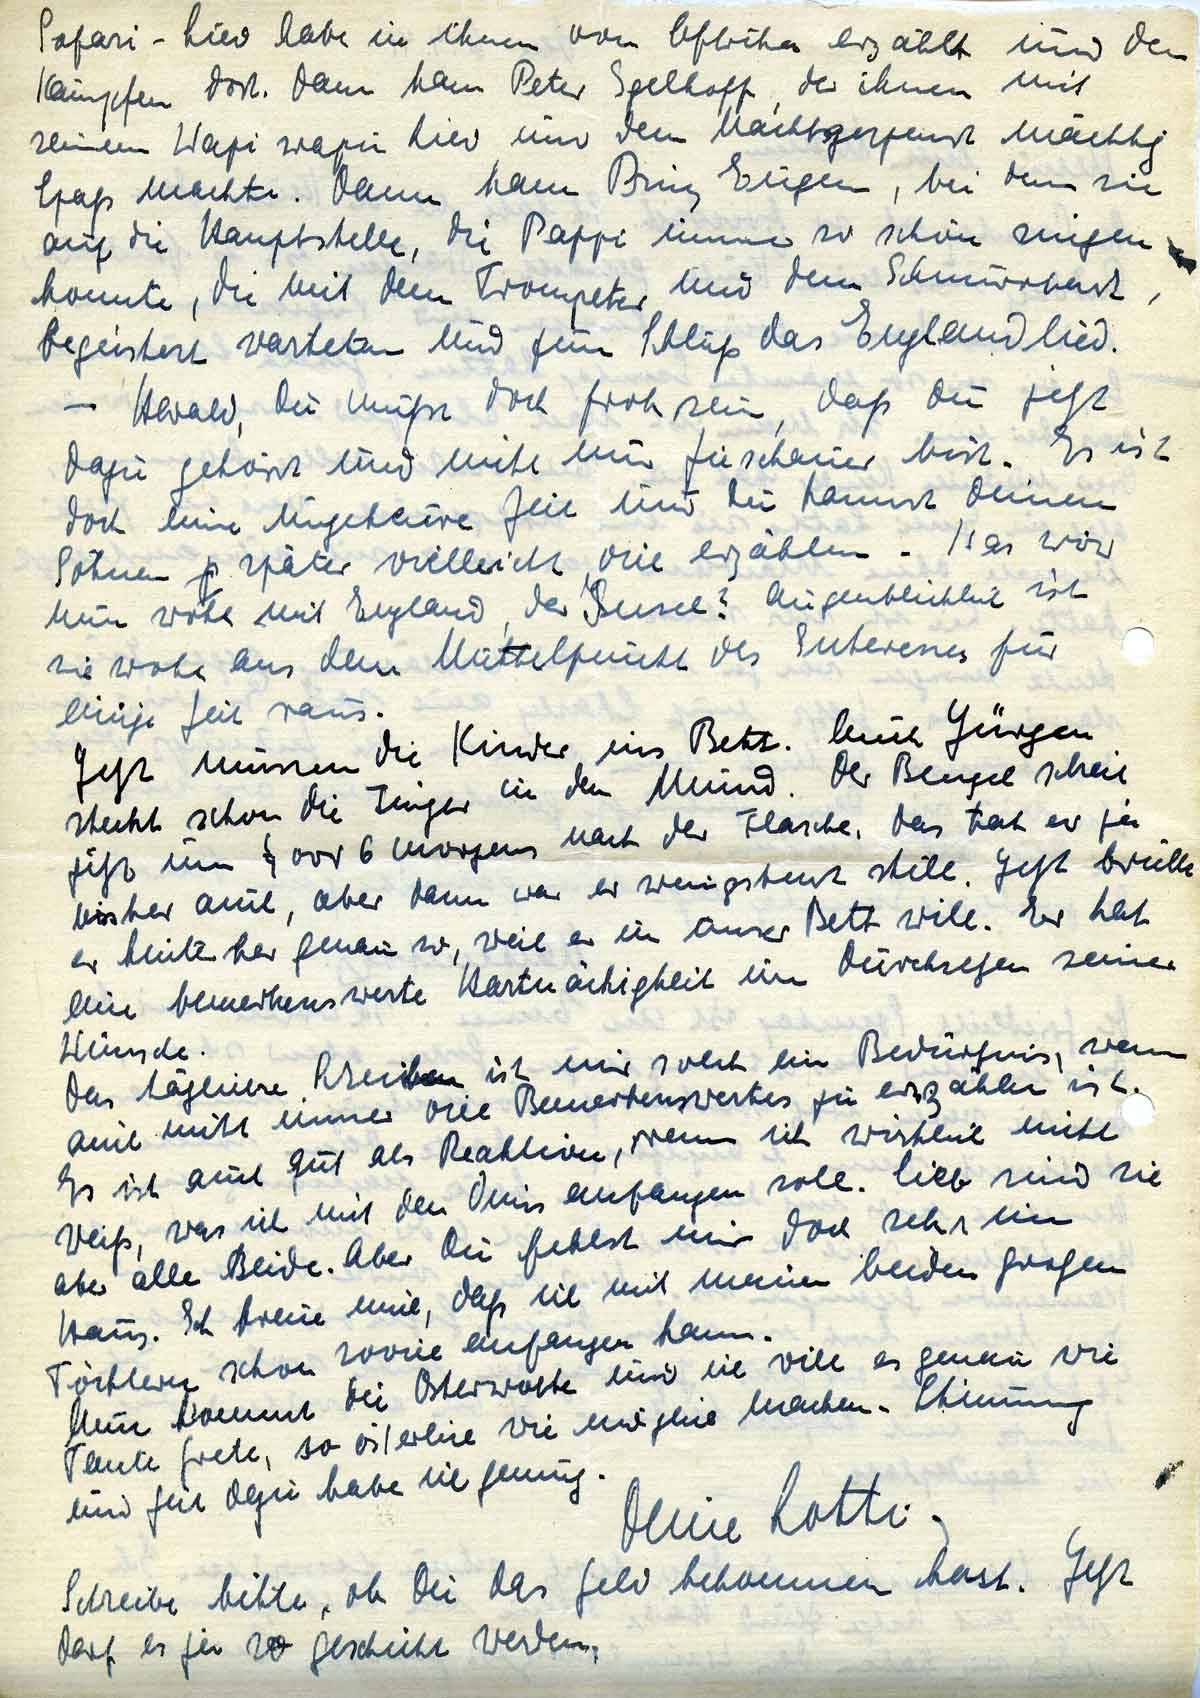 Safari-Lied habe ich ihnen von Afrika erzählt und den
Kämpfen dort. Dann kam Peter Egelhoff, der ihnen mit
seinem Wapi wapu Lied und dem Nachtgespenst mächtig
Spaß machte. Dann kam Prinz Eugen, bei dem sie
auf die Hauptstelle, die Pappi immer so schön singen
konnte, die mit dem Trompeter und dem Schnurrbart,
begeistert warteten und zum Schluß das Englandlied.
– Harald, Du mußt doch froh sein, daß Du jetzt
dazu gehörst und nicht nur Zuschauer bist. Es ist
doch eine ungeheure Zeit und Du kannst Deinen
Söhnen später vielleicht viel erzählen. Was wird
nun wohl mit England, der Insel? Augenblicklich ist
sie wohl aus dem Mittelpunkt des Interesses für
einige Zeit raus.
Jetzt müssen die Kinder ins Bett. Auch Jürgen
steckt schon die Finger in den Mund. Der Bengel schreit
jetzt um vor 6 morgens nach der Flasche. Das tat er ja
bisher auch, aber dann war er wenigstens still. Jetzt brüllt
er hinterher genau so, weil er in unser Bett will. Er hat
eine bemerkenswerte Hartnäckigkeit im Durchsetzen seiner
Wünsche.
Das tägliche Schreiben ist mir solch ein Bedürfnis, wenn
auch nicht immer viel Bemerkenswertes zu erzählen ist.
Es ist auch gut als Reaktion, wenn ich wirklich nicht
weiß, was ich mit den Omis anfangen soll. Lieb sind sie
aber alle Beide. Aber Du fehlst mir doch sehr im
Haus. Ich freue mich, daß ich mit meinen beiden großen
Töchtern schon soviel anfangen kann.
Nun kommt die Osterwoche und ich will es genau wie
Tante Grete, so österlich wie möglich machen. Stimmung
und Zeit dazu habe ich genug.
Deine Lotti.
Schreibe bitte, ob Du das Geld bekommen hast. Jetzt
darf es ja so geschickt werden.